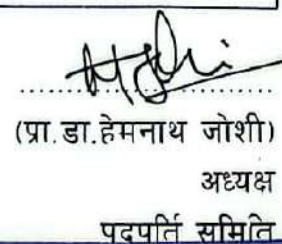 (प्रा.डा.हेमनाथ जोशी)
अध्यक्ष
पदपूर्ति समिति